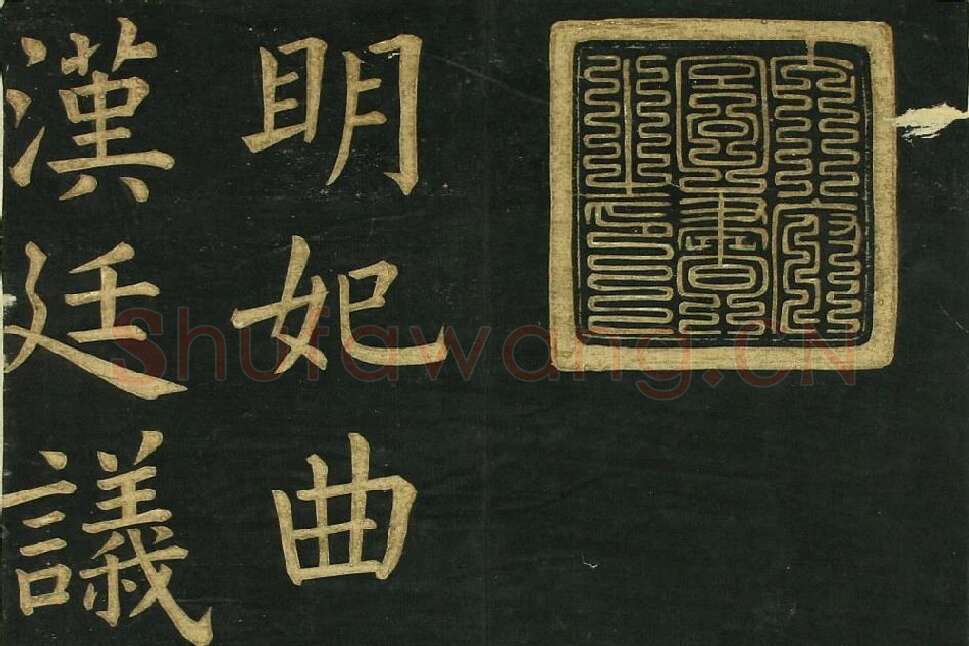 明妃曲
漢廷議
Shufawang.CN